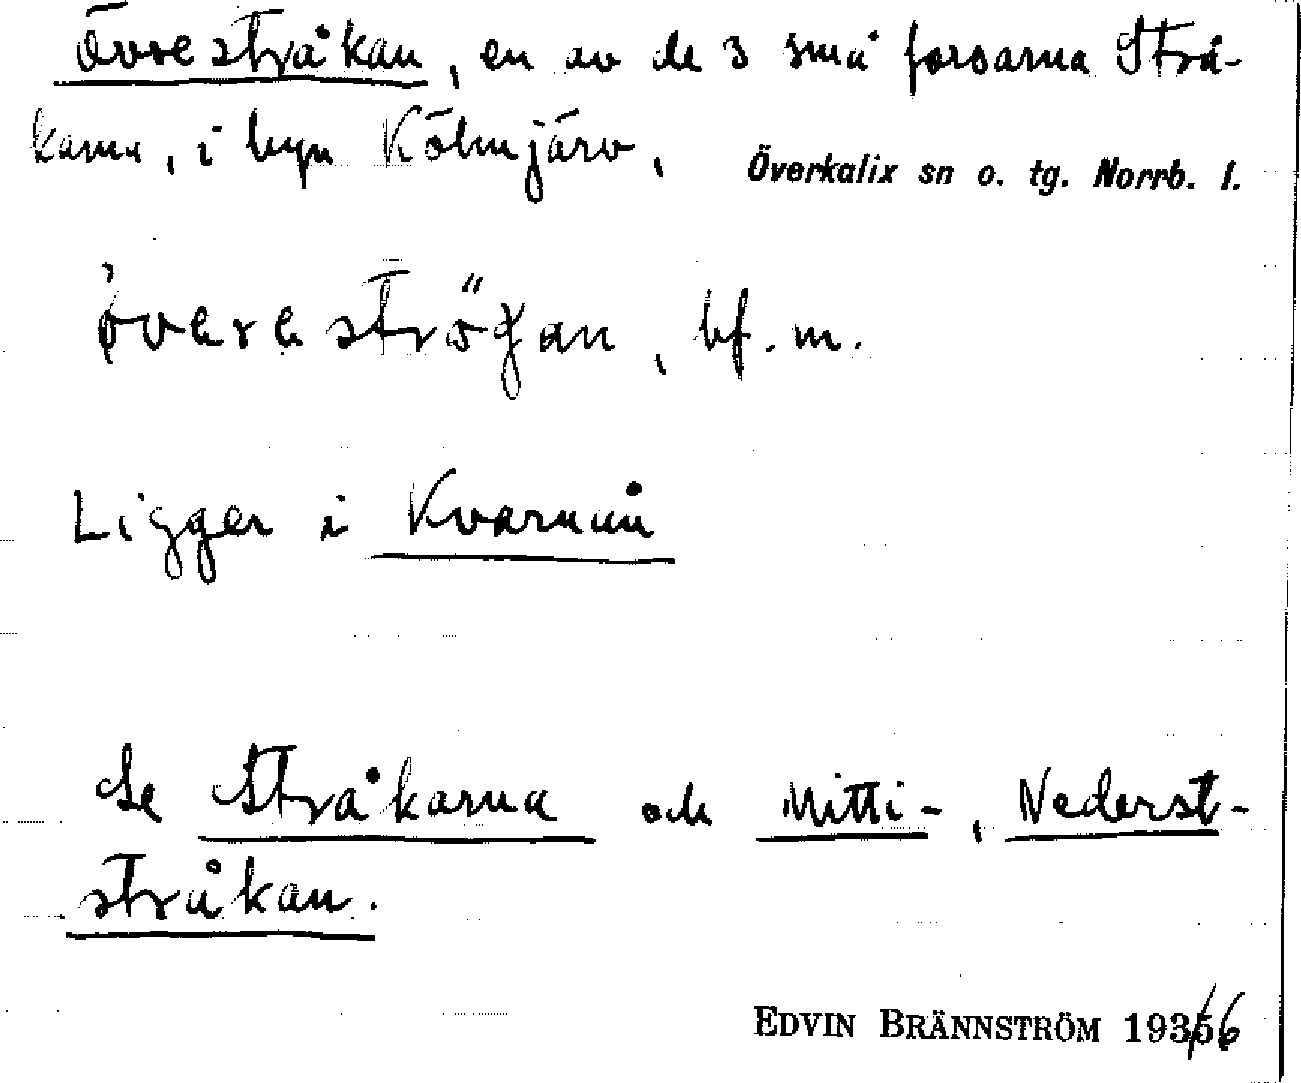 Övrestråkan, en av de 3 små forsarna Strå-
karna, i byn Kölmjärv,
Överkalix sn o. tg. Norrb. l.
övereströgan, bf. m.
Ligger i Kvarnån
Se Stråkarna och Mitti-, Nederst-
stråkan.
EDVIN BRÄNNSTRÖM 1936